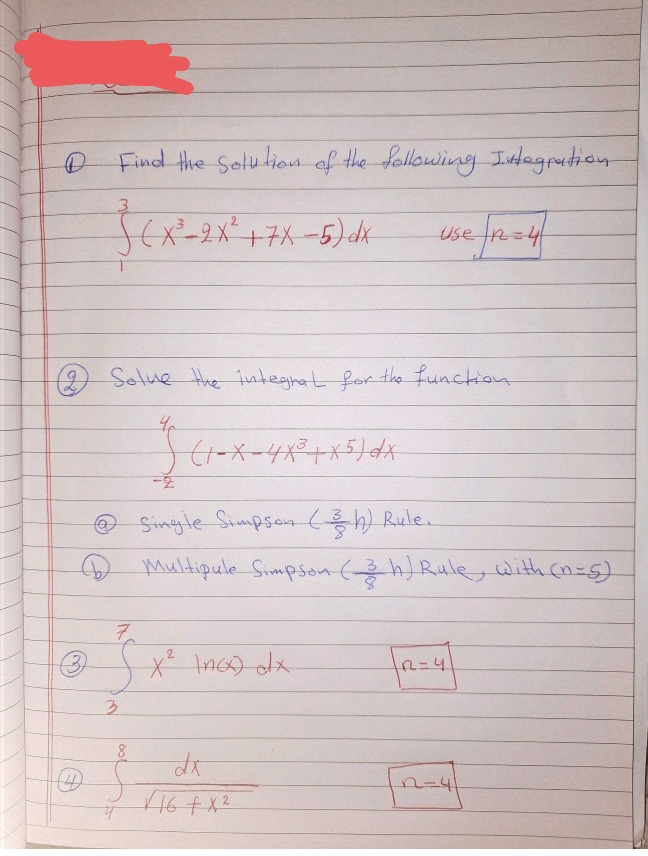 ① Find the solution of the following Integration
∫₁³ (x³-2x²+7x-5) dx use n=4
② Solve the integral for the function
∫₋₂⁴ (1-x-4x³+x5) dx
ⓐ Single Simpson (3/8 h) Rule.
ⓑ Multipule Simpson (3/8 h) Rule, with (n=5)
③ ∫₃⁷ x² ln(x) dx n=4
④ ∫₄⁸ dx/√16+x² n=4